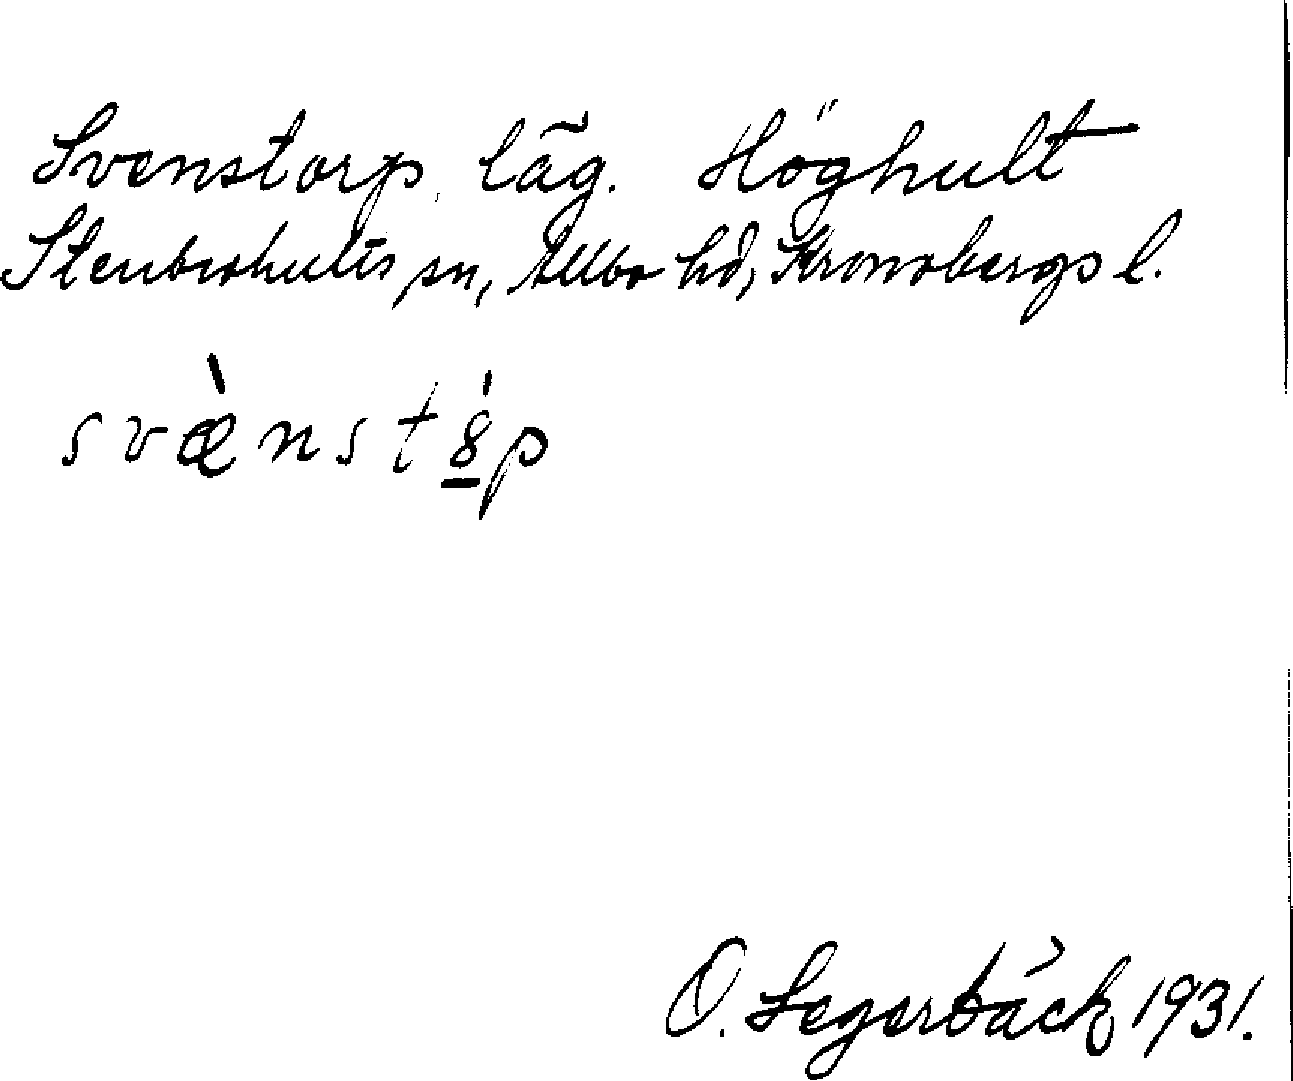 Svenstorp, läg. Höghult
Stenbrohults sn, Allbo hd, Kronobergs l.
svæ̀nstó̱p
O. Segerbäck 1931.